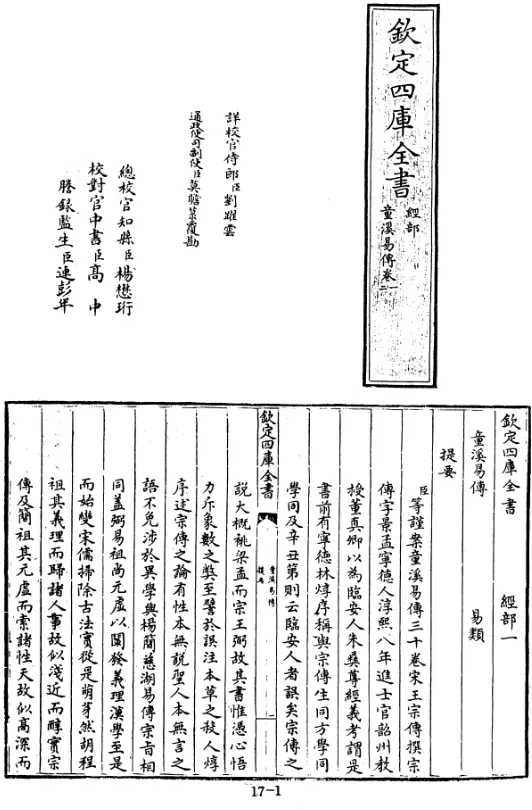 欽定四庫全書
經部
童溪易傳卷一
詳校官侍郎臣劉躍雲
通政使司副使臣莫瞻菉覆勘
總校官知縣臣楊懋珩
校對官中書臣高中
謄錄監生臣連彭年
欽定四庫全書 經部一
童溪易傳 易類
提要
臣等謹案童溪易傳三十卷宋王宗傳撰宗
傳字景孟寧德人淳熙八年進士官韶州教
授董真卿以為臨安人朱彝尊經義考謂是
書前有寧德林焞序稱與宗傳生同方學同
學同及辛丑第則云臨安人者誤矣宗傳之
欽定四庫全書
童溪易傳
提要
一
說大概祧梁孟而宗王弼故其書惟憑心悟
力斥象數之弊至譬於誤注本草之殺人焞
序述宗傳之論有性本無說聖人本無言之
語不免涉於異學與楊簡慈湖易傳宗旨相
同蓋弼易祖尚元虛以闡發義理漢學至是
而始變宋儒掃除古法實從是萌芽然胡程
祖其義理而歸諸人事故似淺近而醇實宗
傳及簡祖其元虛而索諸性天故似高深而
17-1